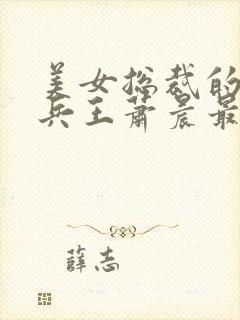 美女总裁的
兵王萧晨最
薛志